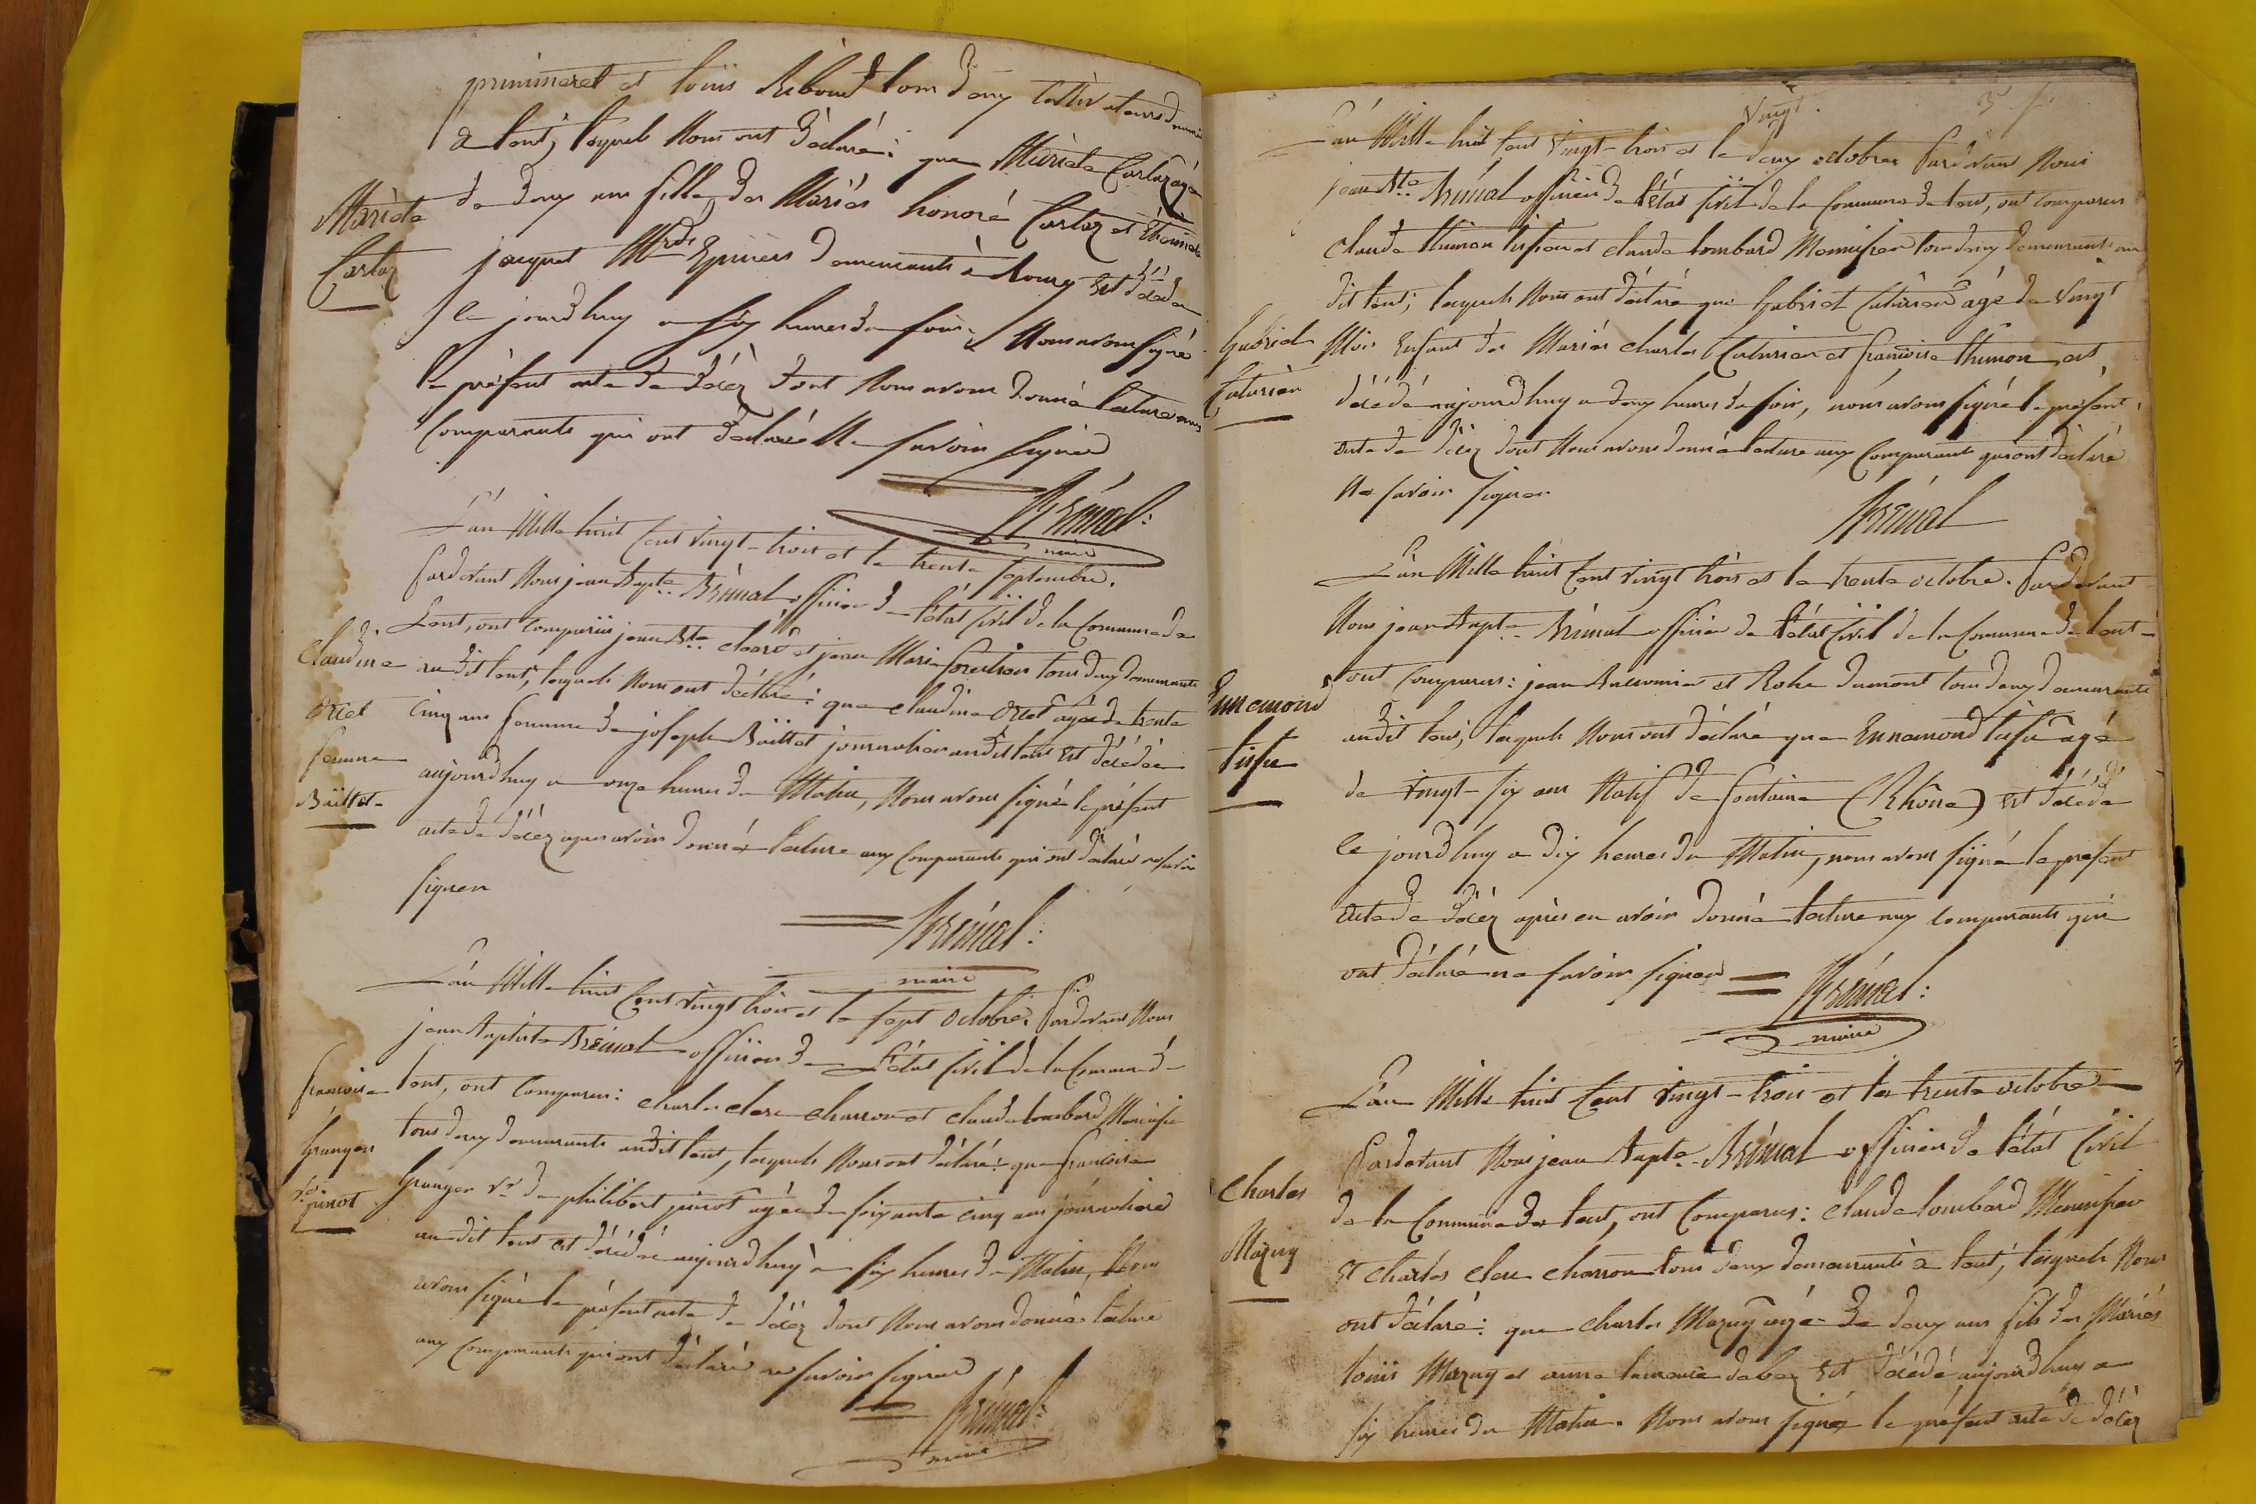 et Louis Riboud tous deux
à tent, lesquels Nous ont déclaré: que Mariete Cartaz agée
de deux ans fille des Mariés honoré Cartaz et
Mariete
Cartaz
jaquet Mds Epiciers demeurants à est décédé
le jourd'huy a six heures du soir, Nous avons signé
le présent acte de décéz dont Nous avons donné lecture aux
Comparants qui ont déclaré Ne savoir signer
Brénal:
maire
L'an Mille huit Cent vingt-trois et le trente septembre.
Pardevant Nous jean Bapte. Brénal officier de l'état Civil de la Commune de
tent, ont comparu jean Bte. et jean Marie tous deux demeurants
Claudine
Ortet
femme
audit tent, lesquels Nous ont déclaré: que Claudine Ortet agée de trente
cinq ans femme de joseph journalier audit tent est décédée
aujourd'huy a onze heures du Matin, Nous avons signé le présent
acte de décéz apres avoir donné lecture aux Comparants qui ont déclaré ne savoir
signer
Brénal:
maire
L'an Mille huit Cent vingt trois et le sept Octobre. Pardevant Nous
jean Baptiste Brénal officier de L'état Civil de la Commune de
francoise
Granger
ve. pinot
tent, ont Comparu: Charles clerc charron et Claude Lombard Menuisier
tous deux demeurants audit tent, lesquels Nous ont déclaré: que francoise
Granger ve. de philibert pinot agée de soixante cinq ans journalière
au dit tent est décédée aujourd'huy à six heures du Matin, Nous
avons signé le présent acte de décéz dont Nous avons donné lecture
aux comparants qui ont déclaré ne savoir signer
Brénal:
maire
vingt.
L'an Mille huit Cent vingt-trois et le deux octobre Pardevant Nous
jean Bte. Brénal officier de l'état Civil de la Commune de tent, ont comparu
Claude thimon et claude Lombard Menuisier tous deux demeurants au
dit tent; lesquels Nous ont déclaré que Gabriel agé de vingt
Gabriel
Mois Enfant des Mariés charles et françoise thimon est
décédé aujourd'huy a deux heures du soir, nous avons signé le présent
acte de décéz dont Nous avons donné lecture aux Comparants qui ont déclaré
Ne savoir signer
Brénal
L'an Mille huit Cent vingt trois et le trente octobre. Pardevant
Nous jean Bapte. Brénal officier de l'état Civil de la Commune de tent
Ennemond
tissu
ont Comparus: jean et Dumont tous deux demeurants
audit tent; lesquels Nous ont déclaré que Ennemond tissu agé
de vingt-six ans Natif de fontaine (Rhône) est décédé
le jourd'huy a dix heures du Matin, nous avons signé le présent
acte de décéz après en avoir donné lecture aux comparants qui
ont déclaré ne savoir signer
Brénal:
maire
L'an Mille huit Cent vingt-trois et le trente octobre
Pardevant Nous jean Bapte. Brénal officier de l'état Civil
Charles
Mazuy
de la Commune de tent, ont Comparus: Claude Lombard Menuisier
et Charles clerc charron tous deux demeurants à tent; lesquels Nous
ont déclaré: que Charles Mazuy agé de deux ans fils des Mariés
Louis Mazuy et anne est décédé aujourd'huy a
six heures du Matin. Nous avons signé le présent acte de décéz